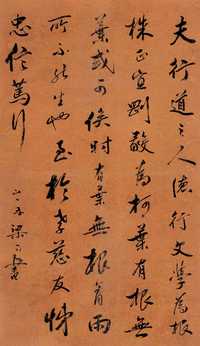 夫行道之人德行文學為根
株正直剛毅為柯葉有根無
葉或可俟時有葉無根膏雨
所不能生也至於孝慈友悌
忠信篤行
山舟梁同書